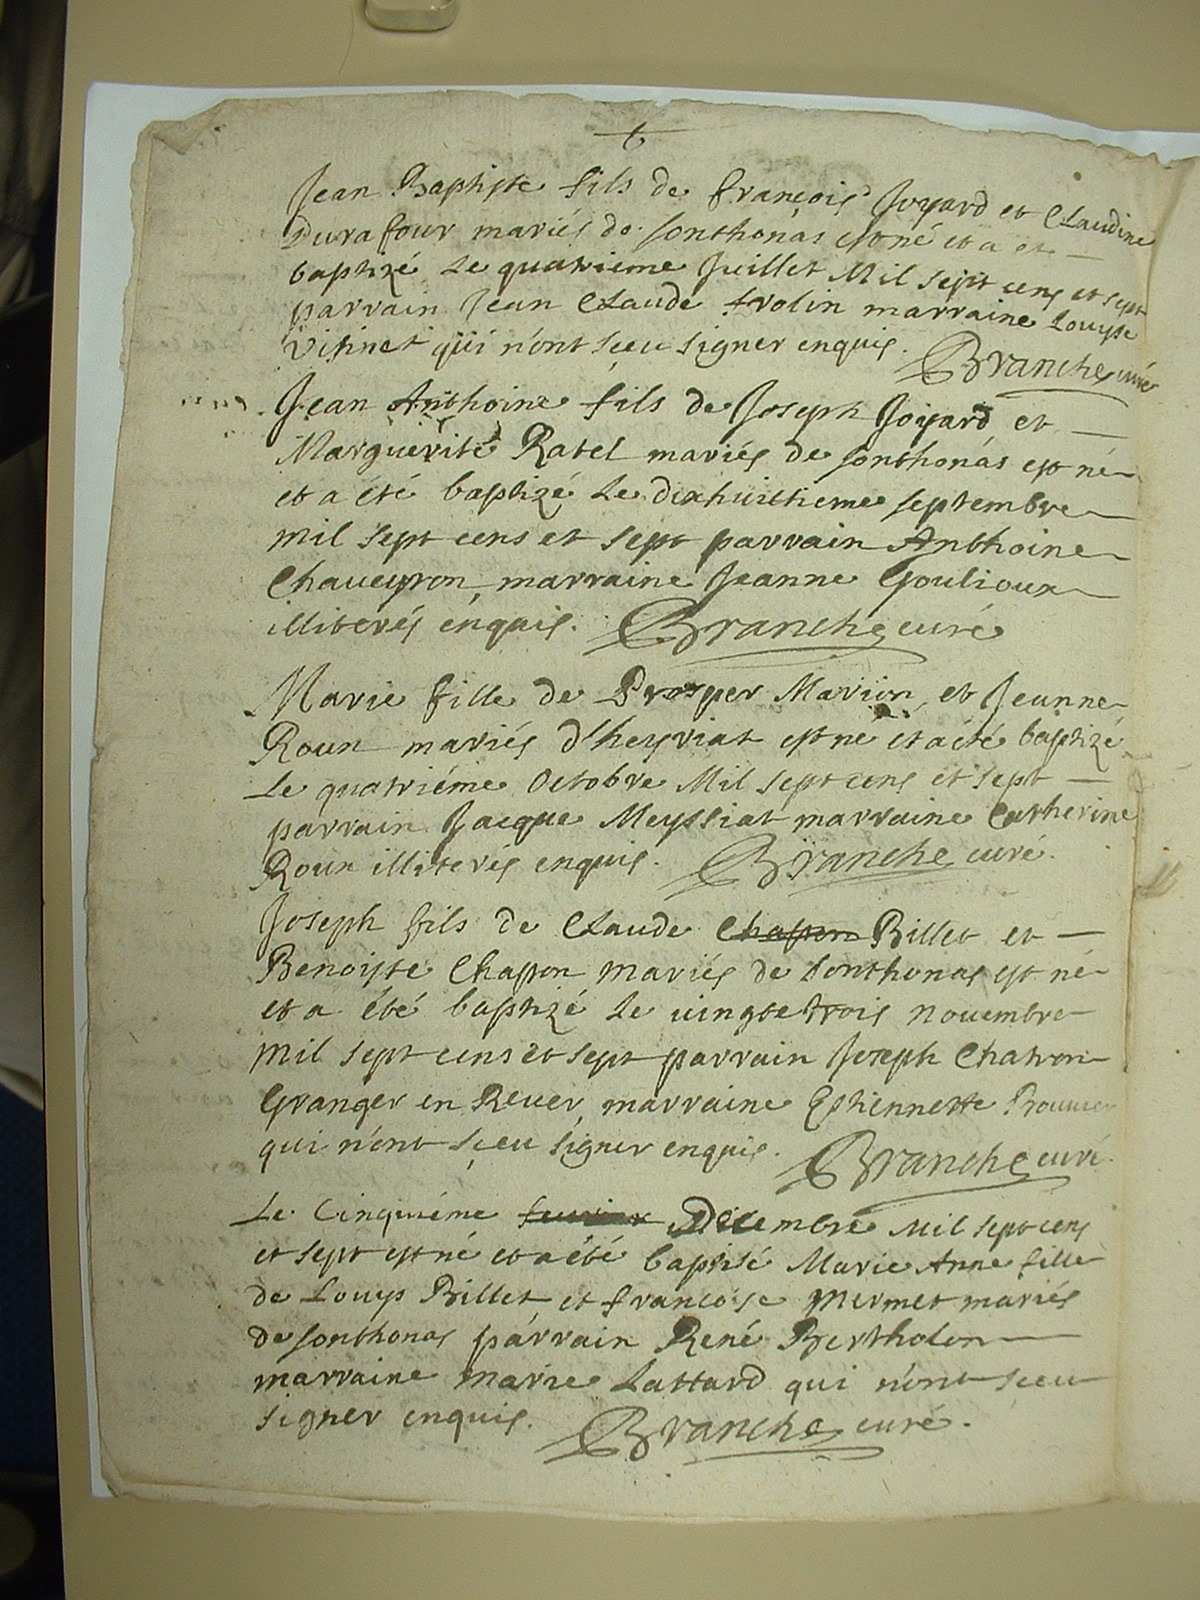 Jean Baptiste fils de françois Joyard et Claudine
Durafour mariés de Sonthonas est né et a et
baptizé Le quatrieme Juillet Mil sept cens et sept
parrain Jean Claude marraine Louyse
qui n'ont sceu signer enquis. Branche curé
Jean Anthoine fils de Joseph Joyard et
Marguerite Ratel mariés de Sonthonas est né
et a été baptizé Le dixhuictieme septembre
mil sept cens et sept parrain Anthoine
Chaveyron, marraine Jeanne Goulioux
illiterés enquis. Branche curé
Marie fille de Prosper Marion et Jeanne
Roux mariés d'heyriat est né et a été baptizé
Le quatriéme Octobre Mil sept cens et sept
parrain Jacque Meyssiat marraine Catherine
Roux illiterés enquis. Branche curé.
Joseph fils de Claude Chapon Billet et
Benoiste Chapon mariés de Sonthonas est né
et a été baptizé Le vingt et trois novembre
mil sept cens et sept parrain Joseph Chatron
Granger en Rever, marraine Estiennette Bouvier
qui n'ont sceu signer enquis. Branche curé.
Le Cinquiéme Decembre Mil sept cens
et sept est né et a été baptisé Marie Anne fille
de Louys Billet et francoise Mermet mariés
de Sonthonas parrain René Bertholon
marraine Marie Lattard qui n'ont sceu
signer enquis. Branche curé.